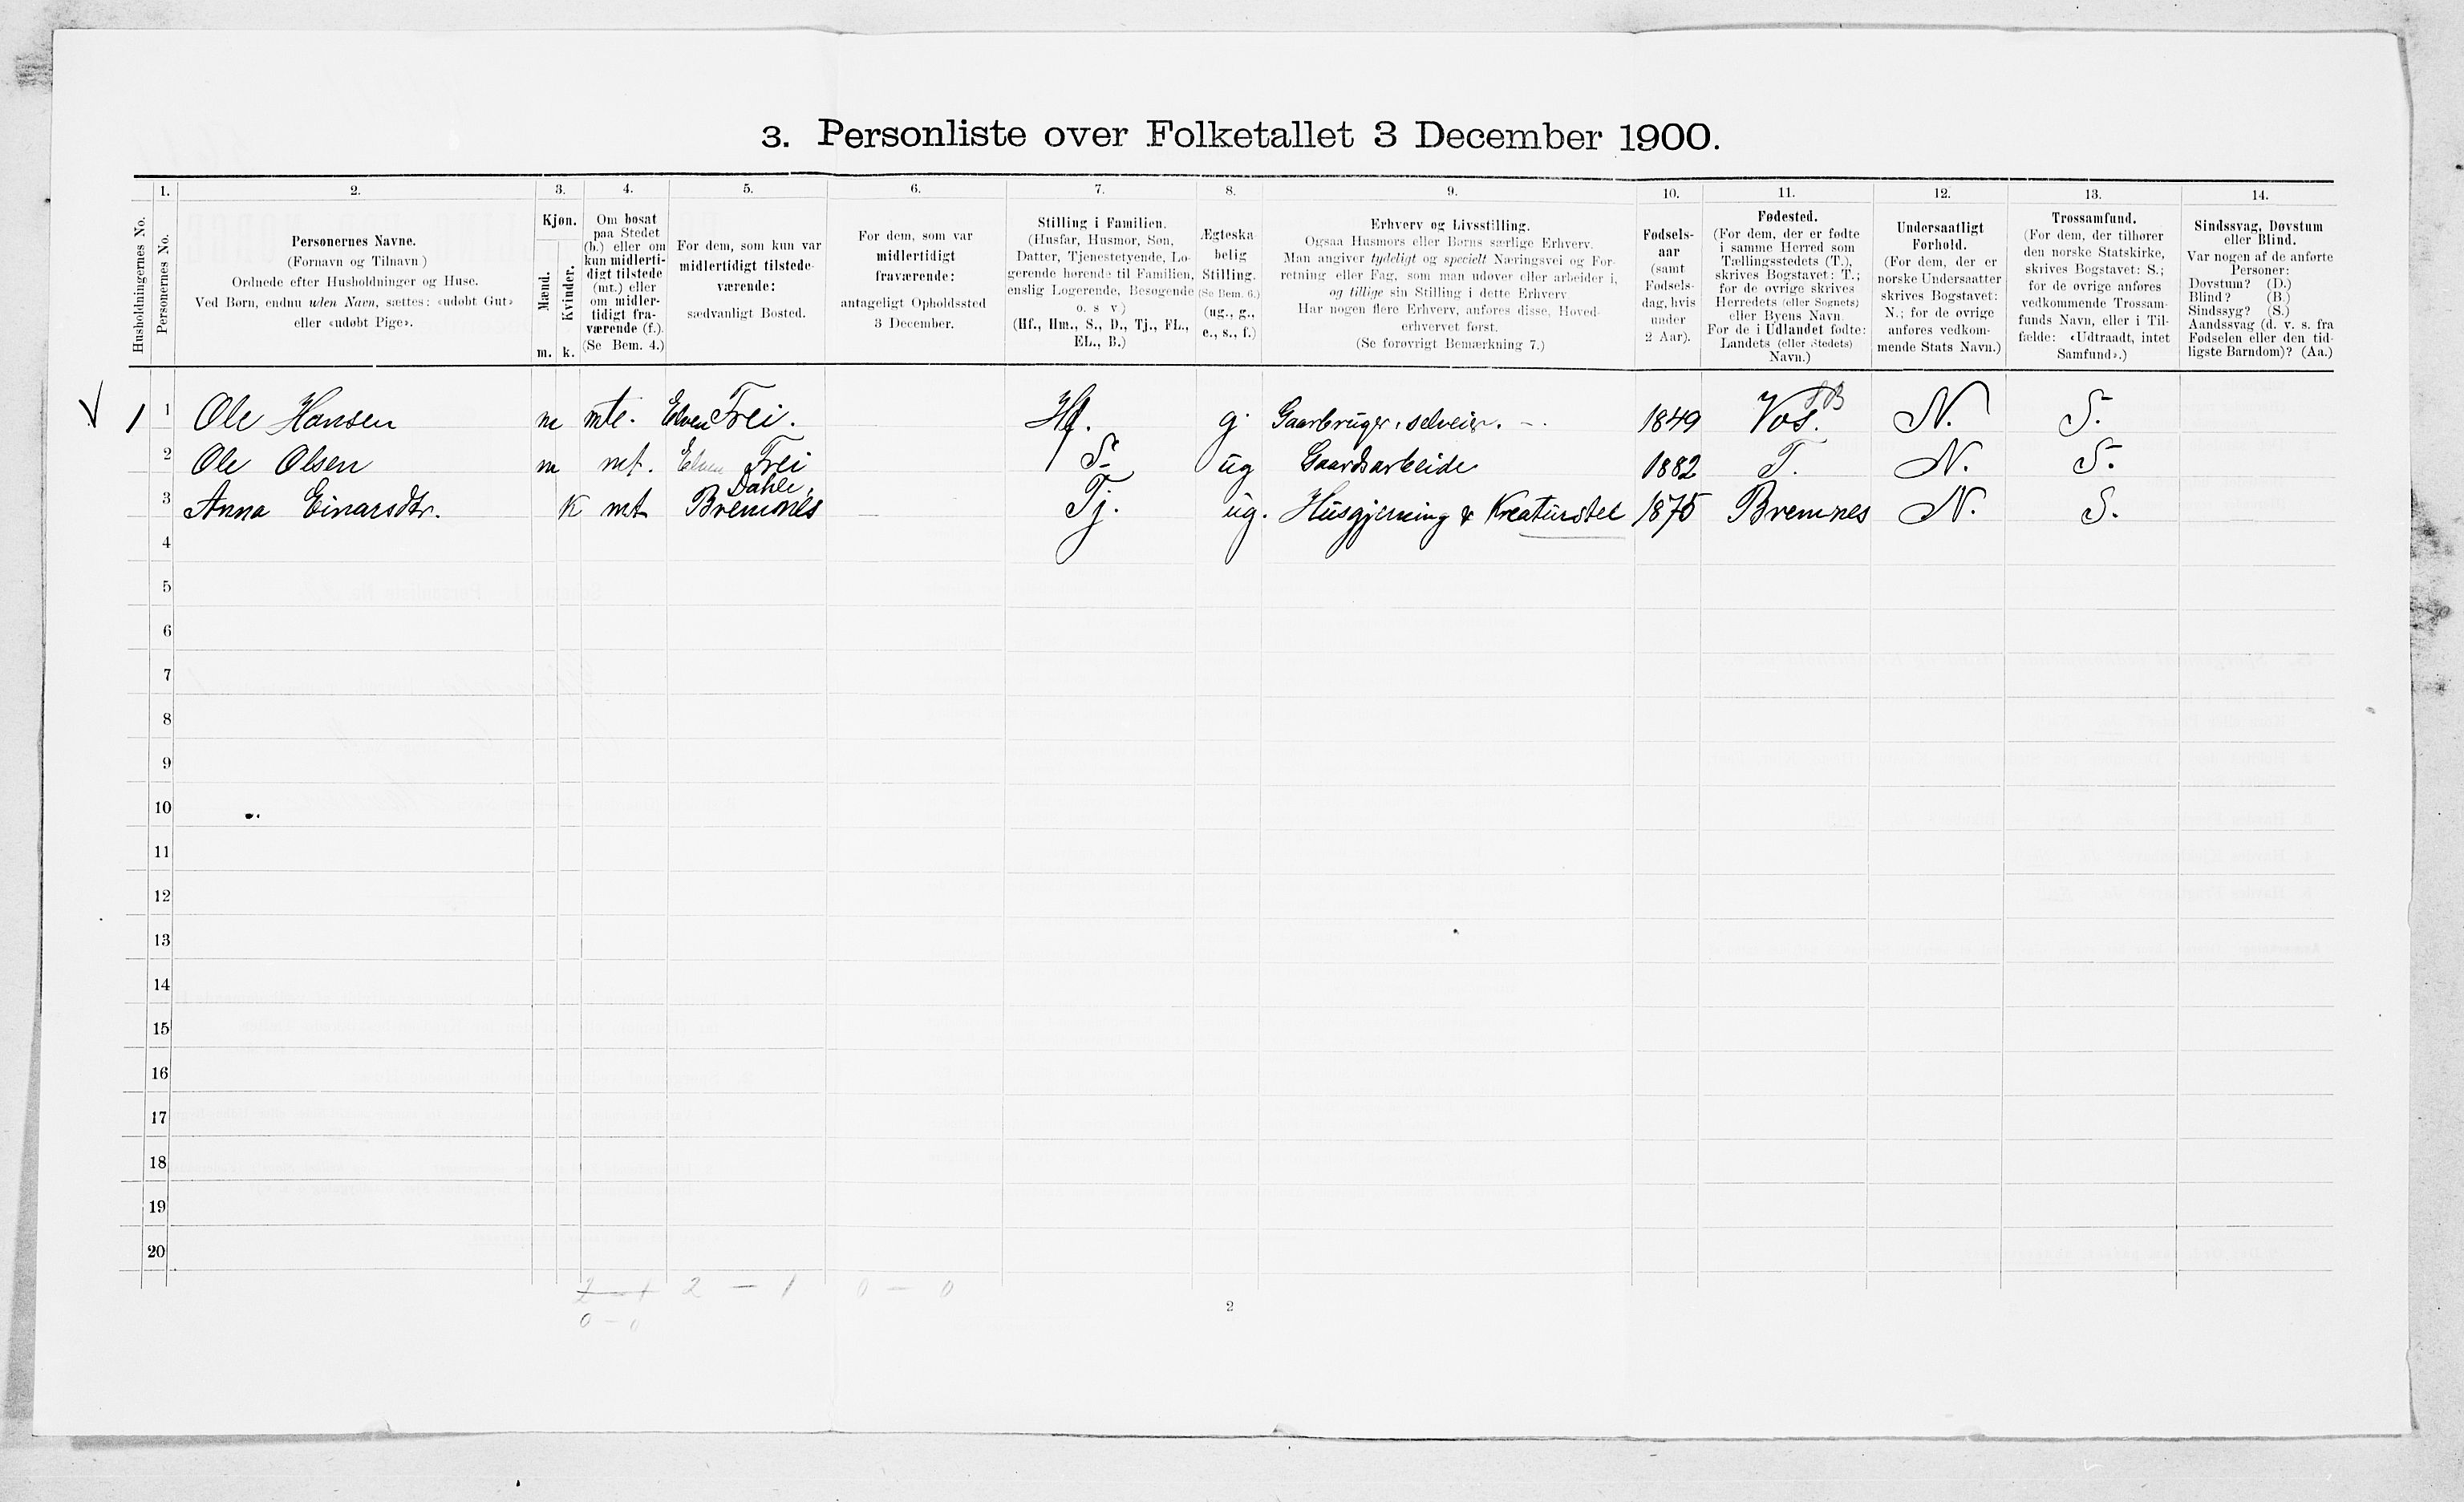 3. Personliste over Folketallet 3 December 1900.
Husholdningernes No.
1.
Personernes No.
2.
Personernes Navne.
(Fornavn og Tilnavn)
Ordnede efter Husholdninger og Huse.
Ved Børn, endnu uden Navn, sættes: «udøbt Gut»
eller «udøbt Pige».
3.
Kjøn.
Mænd.
Kvinder.
m. k.
4.
Om bosat
paa Stedet
(b.) eller om
kun midlerti-
digt tilstede
(mt.) eller
om midler-
tidigt fra-
værende (f.).
(Se Bem. 4.)
5.
For dem, som kun var
midlertidigt tilstede-
værende:
sædvanligt Bosted.
6.
For dem, som var
midlertidigt
fraværende:
antageligt Opholdssted
3 December.
7.
Stilling i Familien.
(Husfar, Husmor, Søn,
Datter, Tjenestetyende, Lo-
gerende hørende til Familien,
enslig Logerende, Besøgende
o. s v)
(Hf., Hm., S., D., Tj., FL.,
EL., B.)
8.
Ægteska
belig
Stilling.
(Se Bem. 6.)
(ug., g.,
e., s., f.)
9.
Erhverv og Livsstilling.
Ogsaa Husmors eller Børns særlige Erhverv.
Man angiver tydeligt og specielt Næringsvei og For-
retning eller Fag, som man udøver eller arbeider i,
og tillige sin Stilling i dette Erhverv.
Har nogen flere Erhverv, anføres disse, Hoved-
erhvervet først.
(Se forøvrigt Bemærkning 7.)
10.
Fødsels-
aar
(samt
Fødsels-
dag, hvis
under
2 Aar).
11.
Fødested.
(For dem, der er fødte
i samme Herred som
Tællingsstedets (T.),
skrives Bogstavet: T.;
for de øvrige skrives
Herredets (eller Sognets)
eller Byens Navn.
For de i Udlandet fødte:
Landets (eller Stedets)
Navn.)
12.
Undersaatligt
Forhold.
(For dem, der er
norske Undersaatter
skrives Bogstavet:
N.; for de øvrige
anføres vedkom-
mende Stats Navn.)
13.
Trossamfund.
(For dem, der tilhører
den norske Statskirke,
skrives Bogstavet: S.;
for de øvrige anføres
vedkommende Trossam-
funds Navn, eller i Til-
fælde: «Udtraadt, intet
Samfund».)
14.
Sindssvag, Døvstum
eller Blind.
Var nogen af de anførte
Personer:
Døvstum? (D.)
Blind? (B.)
Sindssyg? (S.)
Aandssvag (d. v. s. fra
Fødselen eller den tid-
ligste Barndom)? (Aa.)
1 1 Ole Hansen m mte. Elven Frei. Hf. g. Gaarbruger, selveier. 1849 Vos. SB N. S.
2 Ole Olsen m mt. Elven Frei S. ug Gaardsarbeide 1882 T. N. S.
Dahle,
3 Anna Einarsdtr. k mt Bremnes Tj. ug. Husgjerning & Kreaturstel 1875 Bremnes N. S.
4
5
6
7
8
9
10
11
12
13
14
15
16
17
18
19
20
2 – 1 2 – 1 0 – 0
0 – 0
2